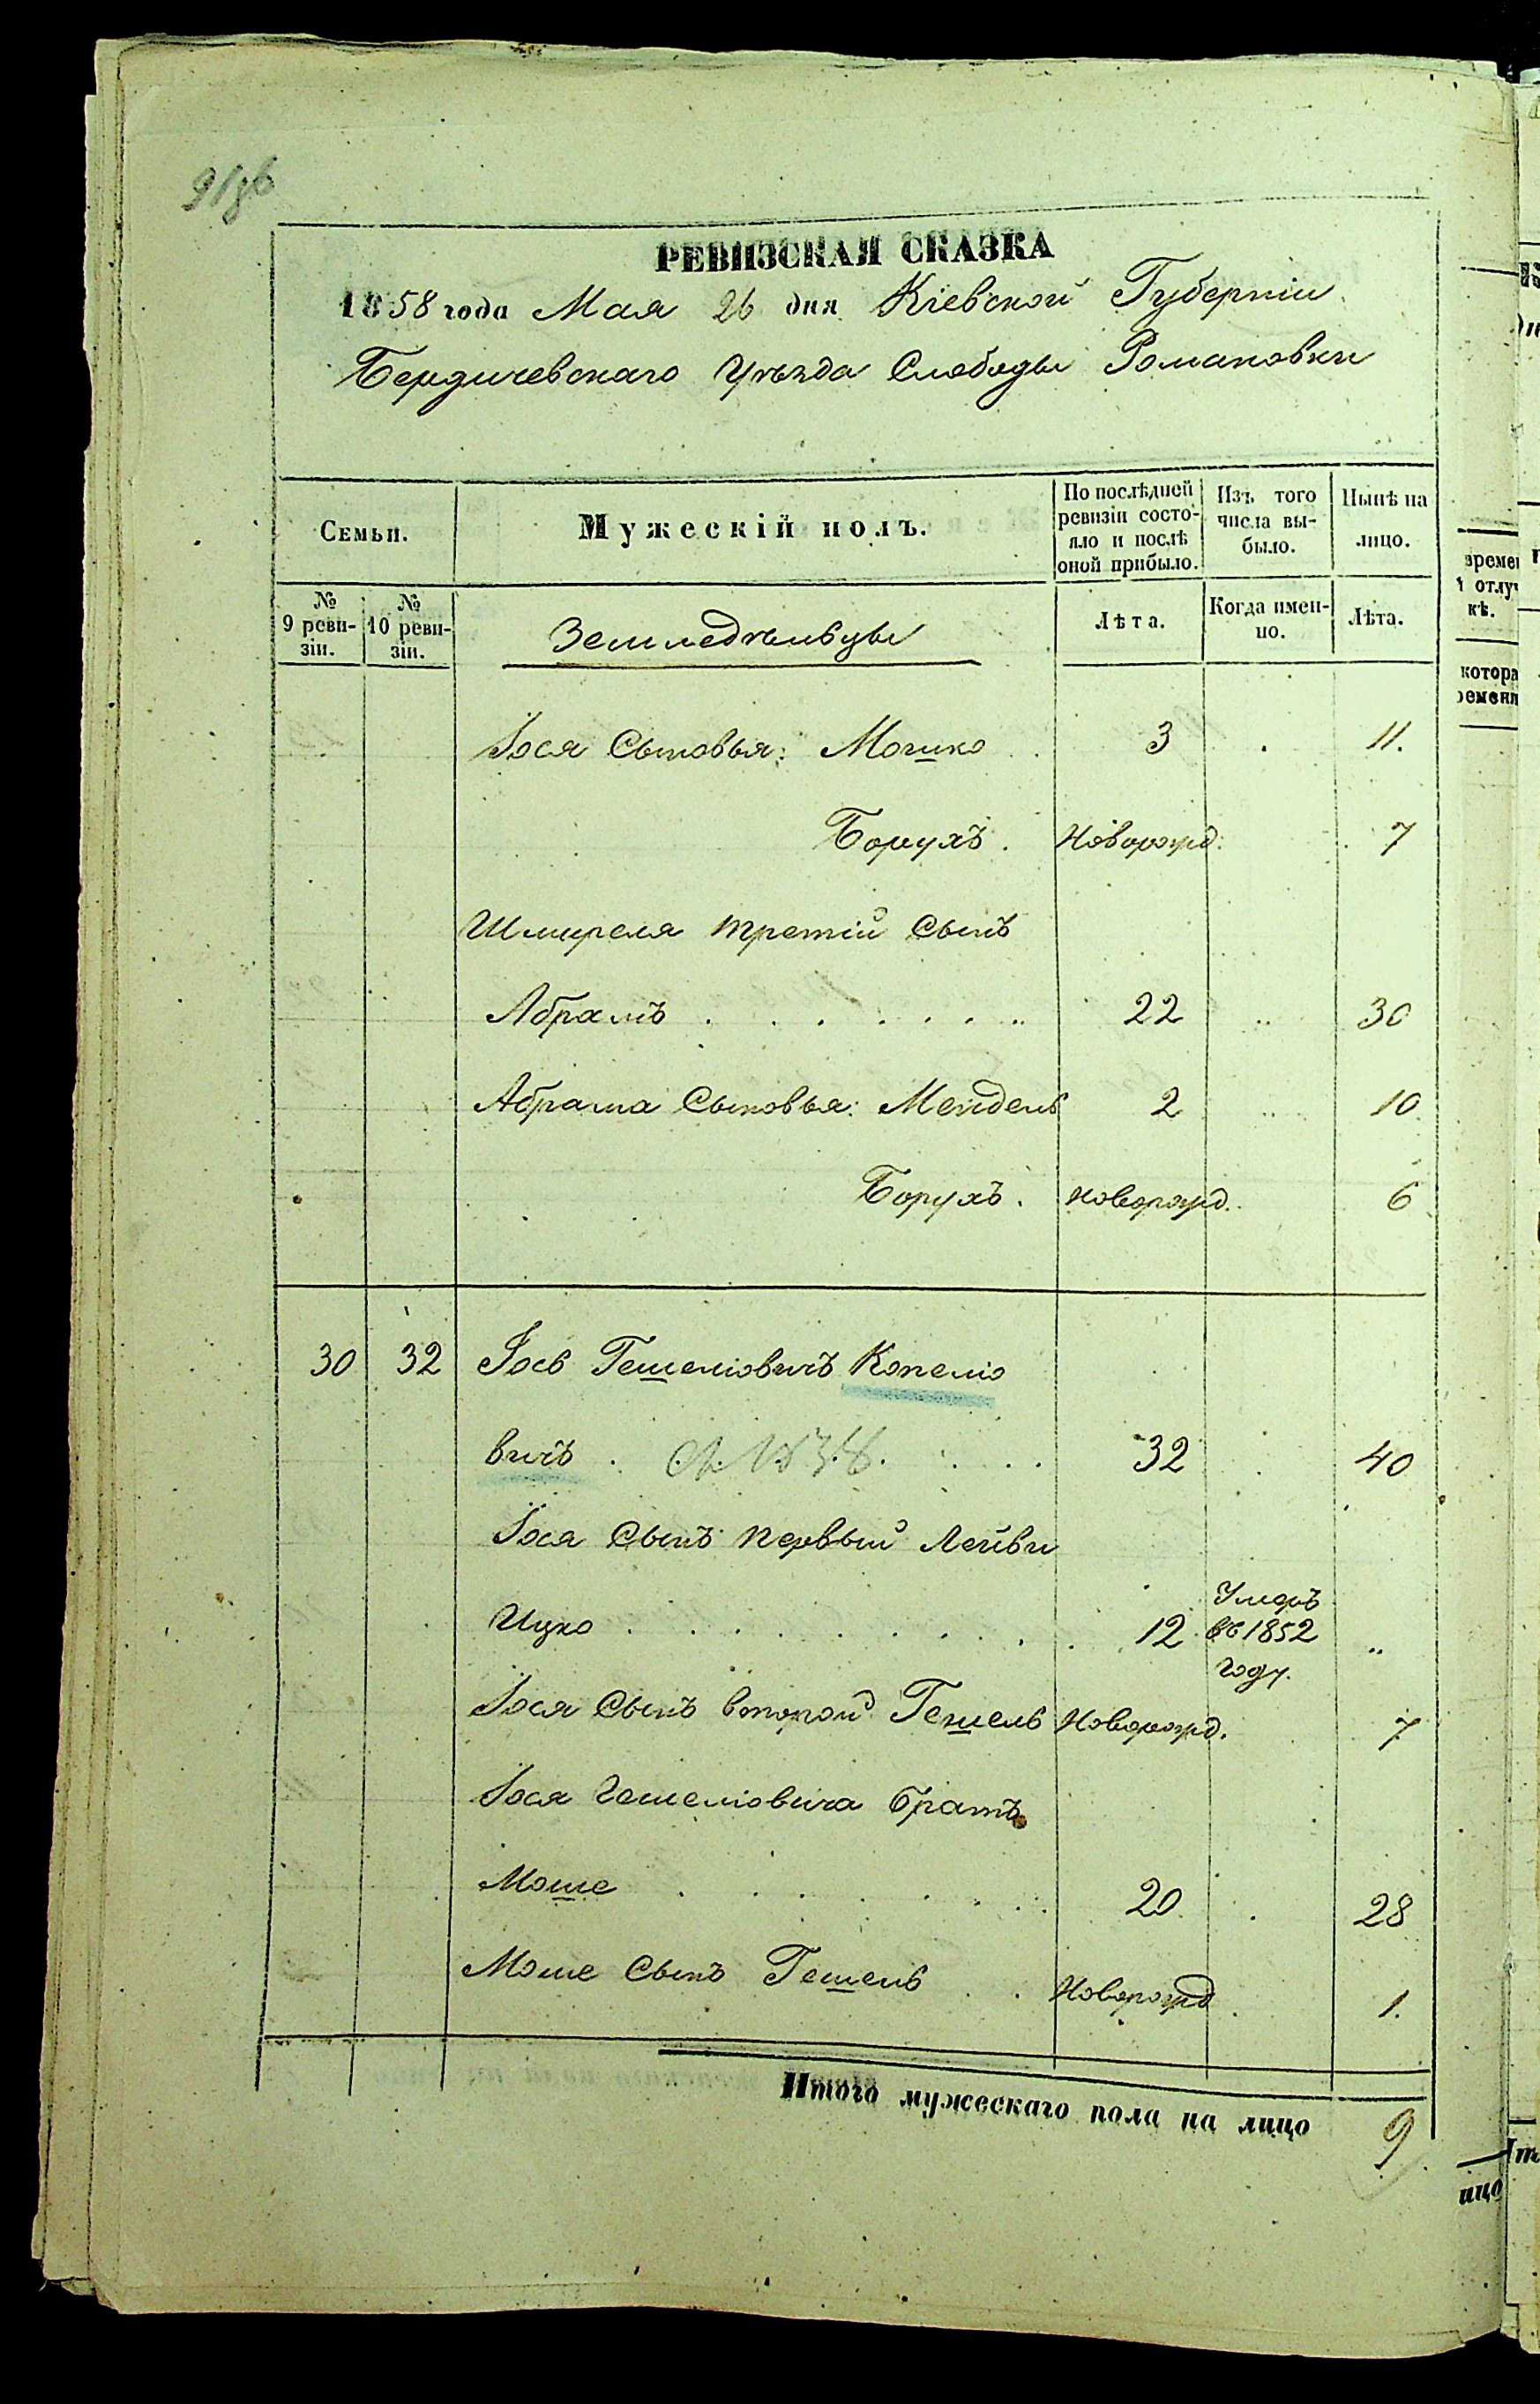 РЕВИЗСКАЯ СКАЗКА
1858 года Мая 26 дня Кіевской Губерніи
Бердичевскаго Уѣзда Слободы Романовки
Семьи. Мужескій полъ. По послѣдней ревизіи состояло и послѣ оной прибыло. Изъ того числа выбыло. Нынѣ на лицо.
№ 9 ревизіи. № 10 ревизіи. Земледѣльцы Лѣта. Когда именно. Лѣта.
Іося Сыновья: Мошко 3 11.
Борухъ. Новорожд. 7
Шмиреля третій Сынъ
Абрамъ 22 30
Абрама Сыновья: Мендель 2 10
Борухъ. новорожд. 6
30 32 Іось Гешеліовичъ Копеліо
вичъ 32 40
Іося Сынъ первый Лейви
Ицко 12 Умеръ въ 1852 году. „
Іося Сынъ второй Гешель Новорожд. 7
Іося Гешеліовича братъ
Моше 20 28
Моше Сынъ Гешель Новорожд 1.
Итого мужескаго пола на лицо 9